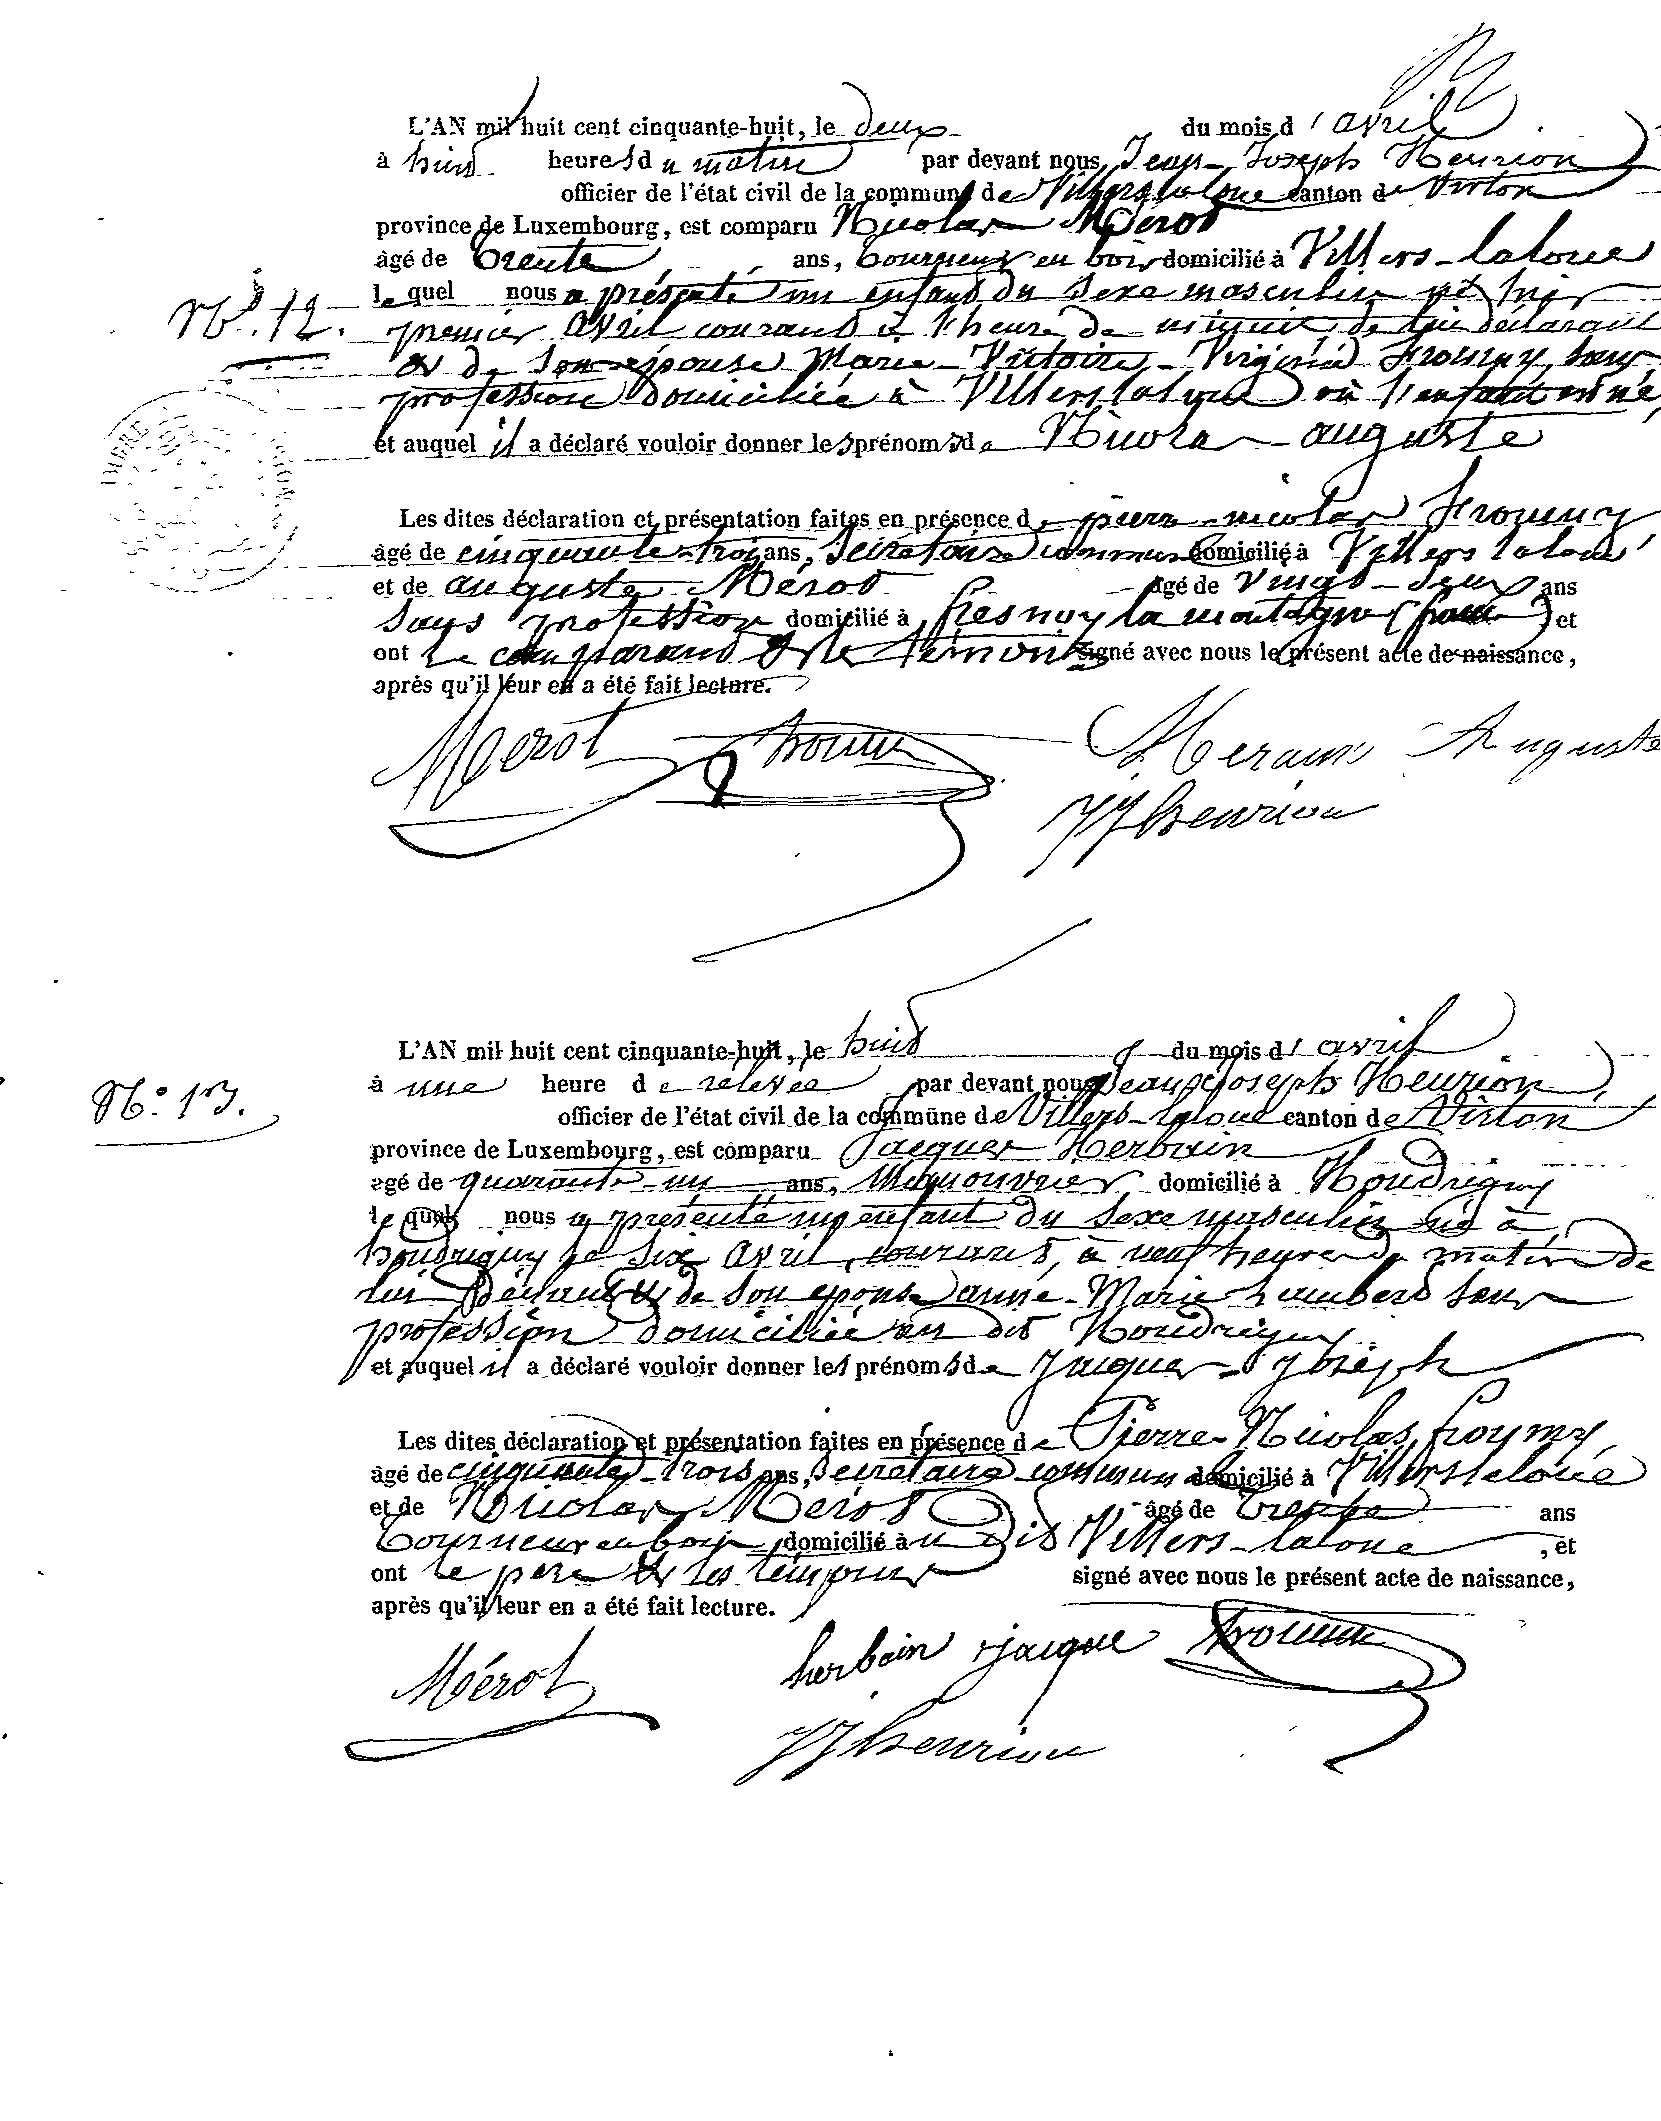 L'AN mil huit cent cinquante-huit, le deux du mois d'avril
à huit heures du matin par devant nous, Jean-Joseph Henrion
officier de l'état civil de la commune de Villerslaloue canton de Virton
province de Luxembourg, est comparu Nicolas Mérot
âgé de trente ans, tourneur en bois domicilié à Villers-laloue
N° 12. lequel nous a présenté un enfant du sexe masculin né
premier avril courant à heure de minuit, de lui déclarant
et de son épouse Marie-Victoire-Virginie Froumy, sans
profession domiciliée à Villerslaloue où l'enfant est né,
et auquel il a déclaré vouloir donner les prénoms de Nicolas-auguste
Les dites déclaration et présentation faites en présence de pierre-nicolas Froumy
âgé de cinquante-trois ans, Secrétaire communal domicilié à Villers laloue
et de auguste Mérot âgé de vingt-deux ans
sans profession domicilié à fresnoy la montagne (france) et
ont le comparant et les témoins signé avec nous le présent acte de naissance,
après qu'il leur en a été fait lecture.
Mérot Froumy Meraux Auguste
JJ henrion
L'AN mil huit cent cinquante-huit, le huit du mois d'avril
N° 13. à une heure de relevée par devant nous Jean-Joseph Henrion,
officier de l'état civil de la commune de Villers-laloue canton de Virton
province de Luxembourg, est comparu Jacques Herbain
âgé de quarante-un ans, Manouvrier domicilié à Houdrigny
lequel nous a présenté un enfant du sexe masculin né à
houdrigny le six avril courant, à neuf heures du matin de
lui déclarant et de son épouse anne-Marie Lambert sans
profession domiciliée au dit Houdrigny
et auquel il a déclaré vouloir donner les prénoms de Jacques-Joseph
Les dites déclaration et présentation faites en présence de Pierre-Nicolas froumy
âgé de cinquante-trois ans, Secrétaire communal domicilié à Villerslaloue
et de Nicolas Mérot âgé de trente ans
tourneur en bois domicilié au dit Villers-laloue, et
ont le père et les témoins signé avec nous le présent acte de naissance,
après qu'il leur en a été fait lecture.
Mérot herbain jacque Froumy
JJ henrion